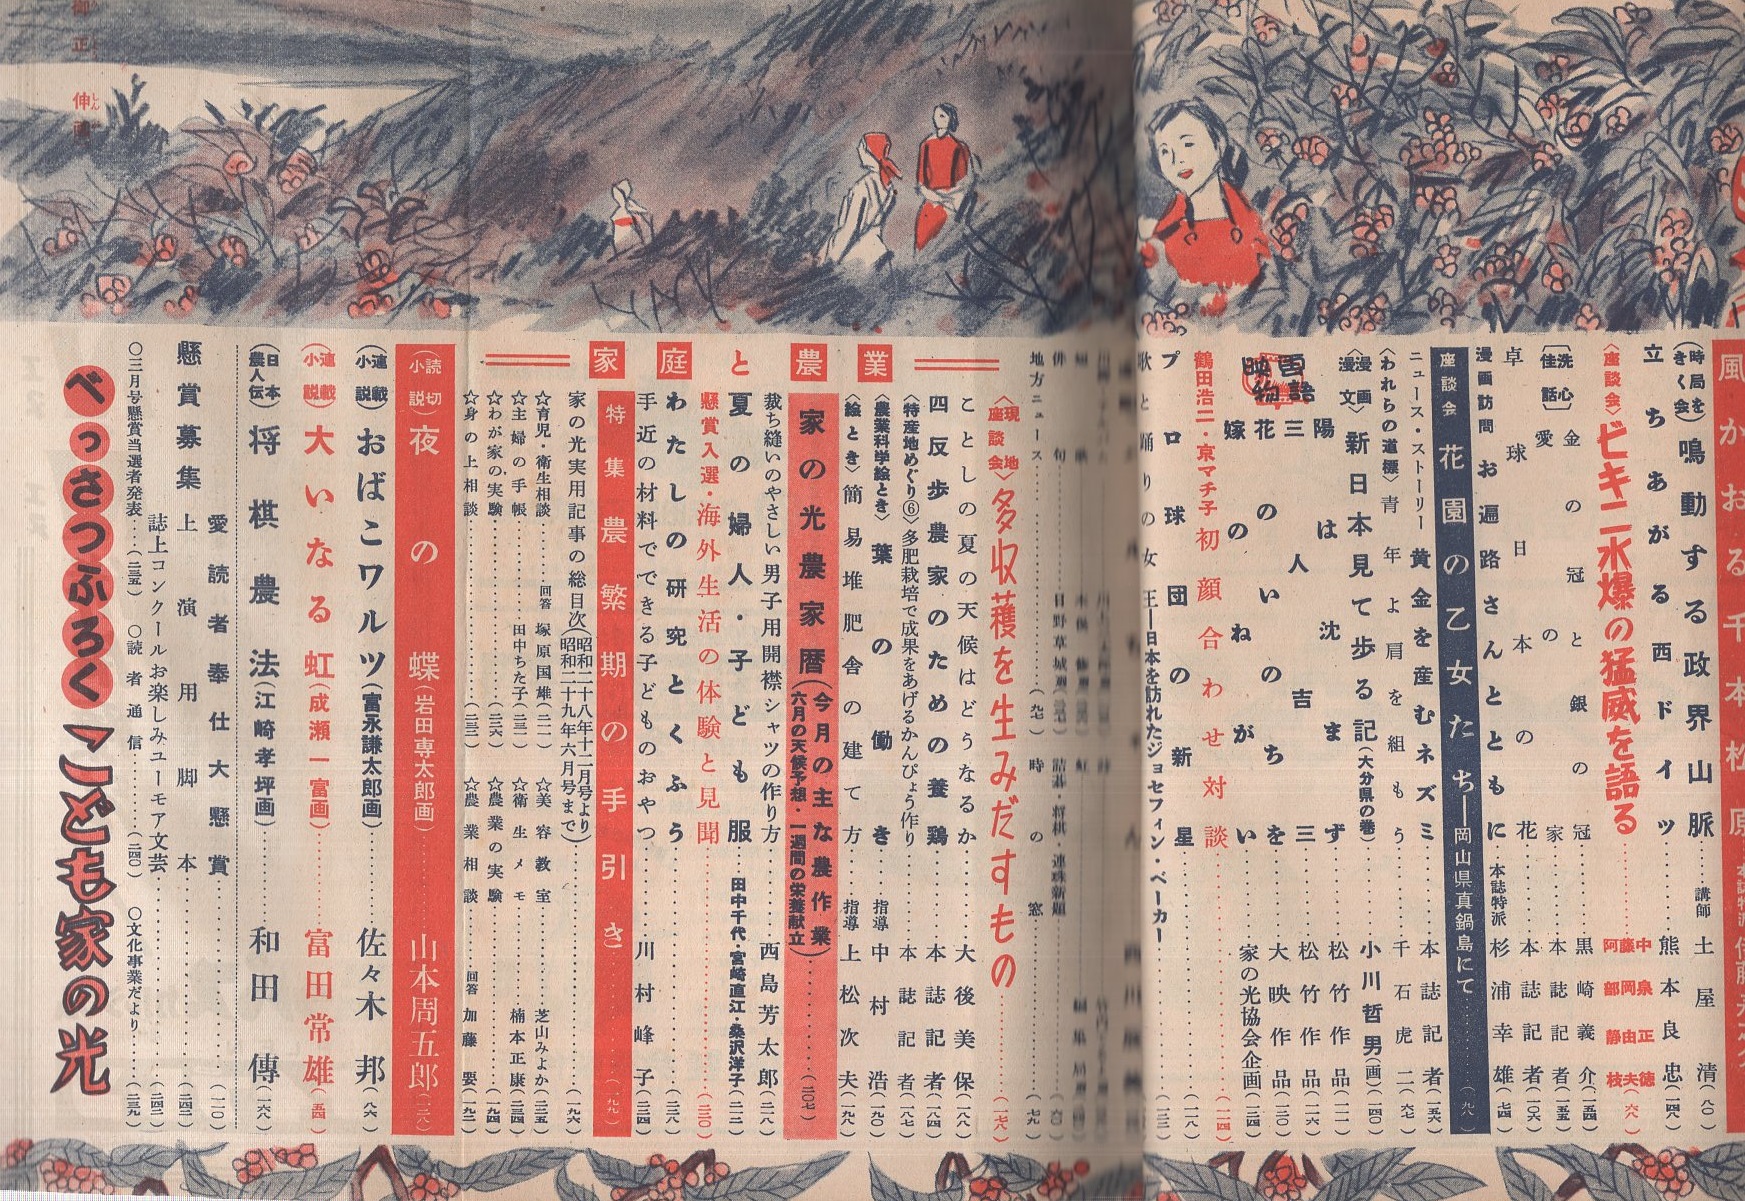 風かおる千本松原
(時局をきく会)鳴動する政界山脈……講師 土屋 清(八〇)
立ちあがる西ドイツ……熊本良忠(一四八)
〈座談会〉ビキニ水爆の猛威を語る……中泉正徳 藤岡由夫 阿部静枝(六〇)
〔洗心佳話〕金の冠と銀の冠……黒崎義介(一五四)
愛の家……本誌記者(一五五)
卓球日本の花……本誌記者(一〇六)
漫画訪問 お遍路さんとともに 本誌特派 杉浦幸雄(七四)
座談会 花園の乙女たち―岡山県真鍋島にて……(九八)
ニュース・ストーリー 黄金を産むネズミ……本誌記者(一五六)
〈われらの道標〉青年よ肩を組もう……千石虎二(六七)
〈漫画漫文〉新日本見て歩る記(大分県の巻)……小川哲男(画)(一四〇)
映画物語
陽は沈まず……松竹作品(一一〇)
三人吉三……松竹作品(一一六)
花のいのちを……大映作品(一三〇)
嫁のねがい……家の光協会企画(一三四)
鶴田浩二・京マチ子 初顔合わせ対談……(一二四)
プロ球団の新星……(一一八)
歌と踊りの女王―日本を訪れたジョセフィン・ベーカー……(一三三)
俳句……日野草城選
詰碁・将棋・連珠新題……(六〇)
地方ニュース……(九七)
時の窓……(七九)
家庭と農業
〈現地座談会〉多収穫を生みだすもの……(一七八)
ことしの夏の天候はどうなるか……大後美保(一八八)
四反歩農家のための養鶏……本誌記者(一八四)
〈特産地めぐり⑥〉多肥栽培で成果をあげるかんぴょう作り……本誌記者(一八七)
〈農業科学絵とき〉葉の働き……指導 中村 浩(一九〇)
〈絵とき〉簡易堆肥舎の建て方……指導 上松次夫(一九八)
家の光農家暦(今月の主な農作業 六月の天候予想・一週間の栄養献立)……(二〇七)
裁ち縫いのやさしい男子用開襟シャツの作り方……西島芳太郎(二一八)
夏の婦人・子ども服……田中千代・宮崎直江・桑沢洋子(二一二)
懸賞入選・海外生活の体験と見聞……(二二〇)
わたしの研究とくふう……(二二八)
手近の材料でできる子どものおやつ……川村峰子(二三四)
特集 農繁期の手引き……(一九九)
家の光実用記事の総目次(昭和二十八年十二月号より昭和二十九年六月号まで)……(一九六)
☆育児・衛生相談……回答 塚原国雄(二一一)
☆美容教室……芝山みよか(二三五)
☆主婦の手帳……田中ちた子(二三一)
☆衛生メモ……楠本正康(二三四)
☆わが家の実験……(二三六)
☆農業の実験……(一九四)
☆身の上相談……(二三三)
☆農業相談……回答 加藤 要(一九二)
(読切小説)夜の蝶(岩田専太郎画)……山本周五郎(一二八)
(連載小説)おばこワルツ(富永謙太郎画)……佐々木 邦(八六)
(連載小説)大いなる虹(成瀬一富画)……富田常雄(五四)
(日本農人伝)将棋農法(江崎孝坪画)……和田 傳(一六八)
懸賞募集
愛読者奉仕大懸賞……(一一〇)
上演用脚本……(二四三)
誌上コンクールお楽しみユーモア文芸……(二四二)
〇三月号懸賞当選者発表……(二三五)
〇読者通信……(二四〇)
〇文化事業だより……(二三九)
べっさつふろく こども家の光